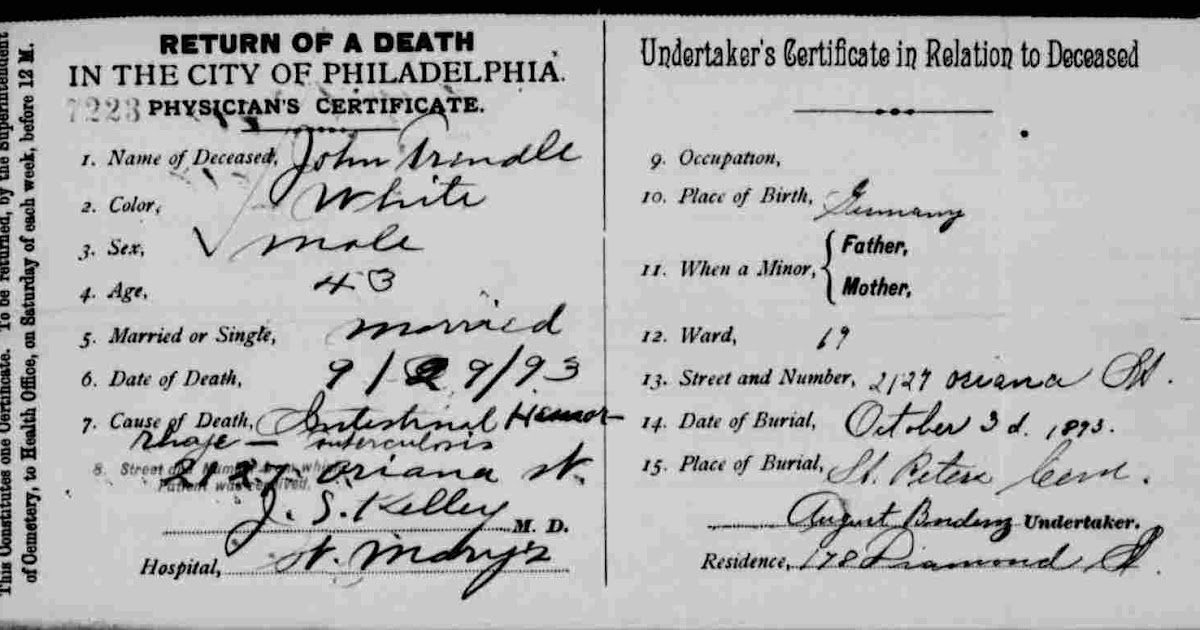 This Constitutes one Certificate. To be returned, by the Superintendent
of Cemetery, to Health Office, on Saturday of each week, before 12 M.
RETURN OF A DEATH
IN THE CITY OF PHILADELPHIA.
7223 PHYSICIAN'S CERTIFICATE.
1. Name of Deceased, John Trindle
2. Color, White
3. Sex, male
4. Age, 43
5. Married or Single, married
6. Date of Death, 9/29/93
7. Cause of Death, Intestinal Hemor-
rhage - tuberculosis
8. Street and Number from which
Patient was received,
2127 Oriana St.
J. S. Kelley M. D.
Hospital, St. Mary's
Undertaker's Certificate in Relation to Deceased
9. Occupation,
10. Place of Birth, Germany
11. When a Minor, { Father,
Mother,
12. Ward, 19
13. Street and Number, 2127 Oriana St.
14. Date of Burial, October 3d. 1893.
15. Place of Burial, St. Peters Cem.
August Undertaker.
Residence, 178 Diamond St.